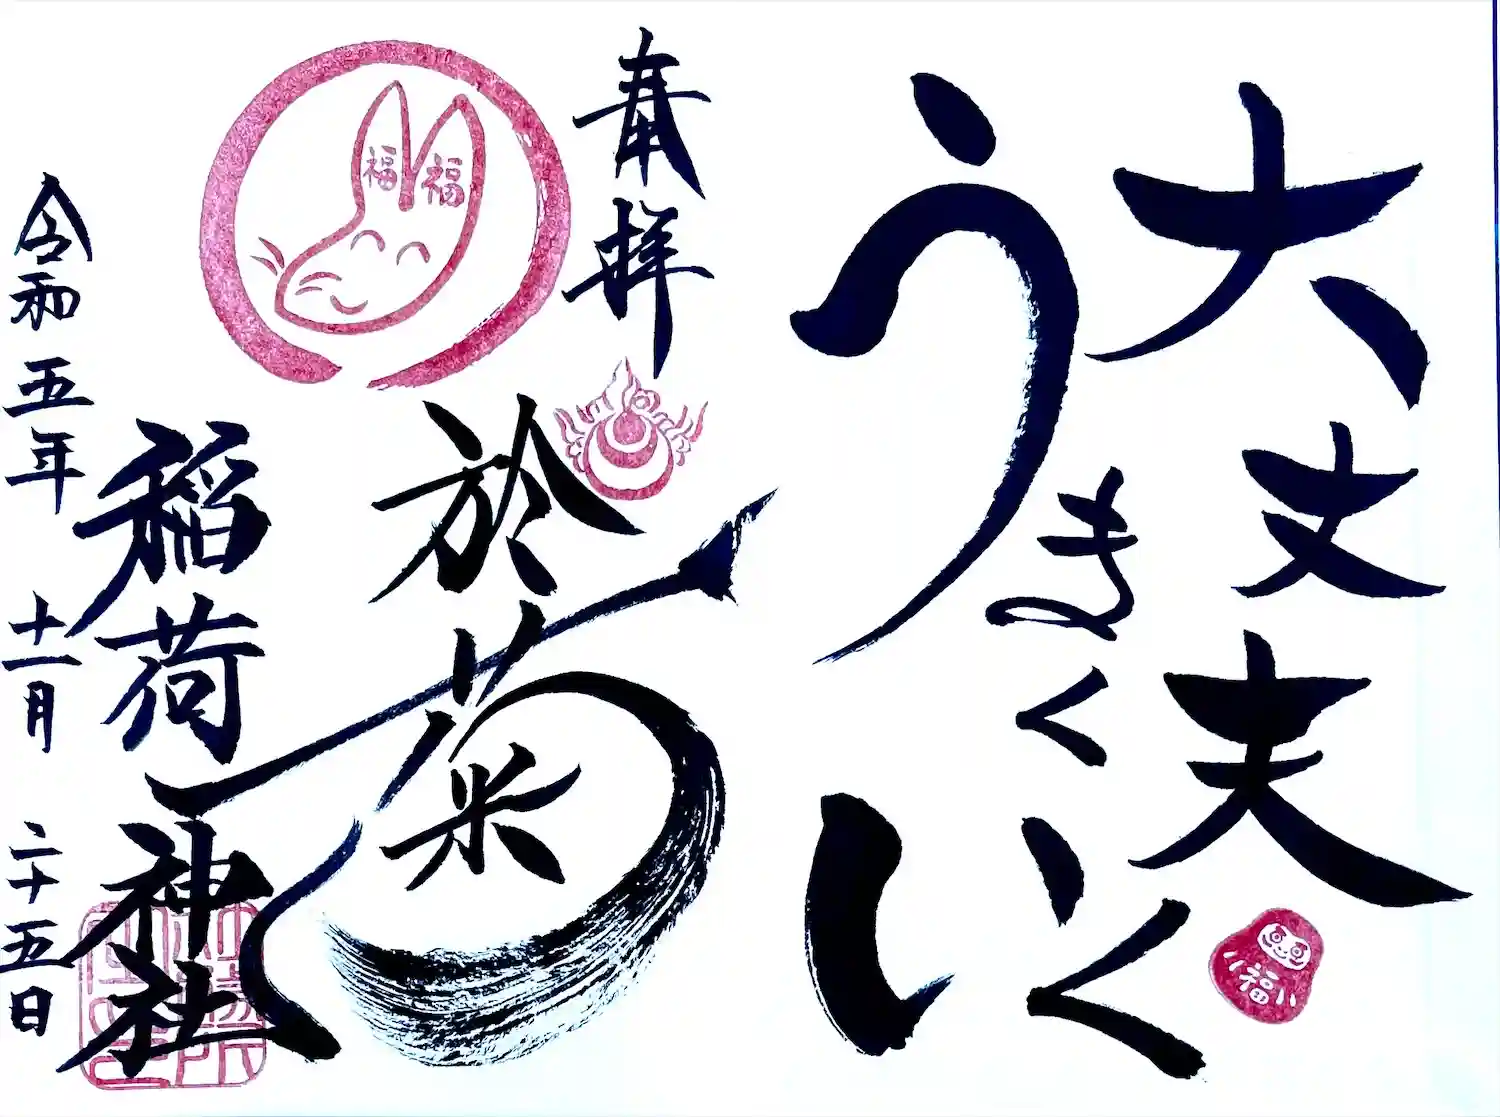 大丈夫
うまくいく
奉拝
於菊
稲荷神社
令和五年 十一月 二十五日
福 福
福